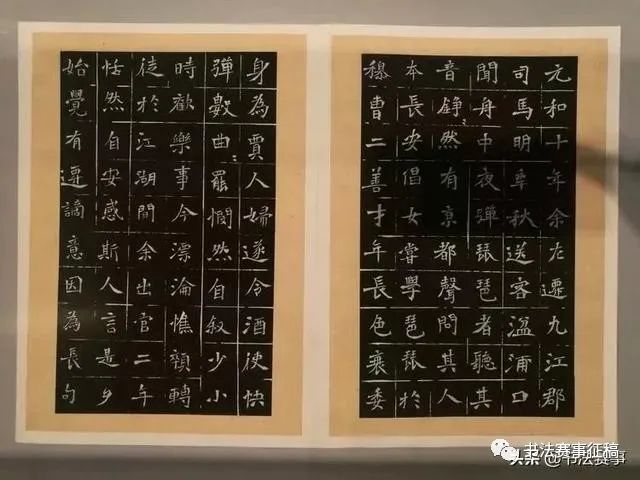 元和十年余左遷九江郡
司馬明年秋送客湓浦口
聞舟中夜彈琵琶者聽其
音錚々然有京都聲問其人
本長安倡女嘗學琵琶於
穆曹二善才年長色衰委
身為賈人婦遂令酒使快
彈數曲々罷憫然自叙少小
時歡樂事今漂淪憔顇轉
徙於江湖間余出官二年
恬然自安感斯人言是夕
始覺有遷謫意因為長句
书法赛事征稿
头条 @书法赛事